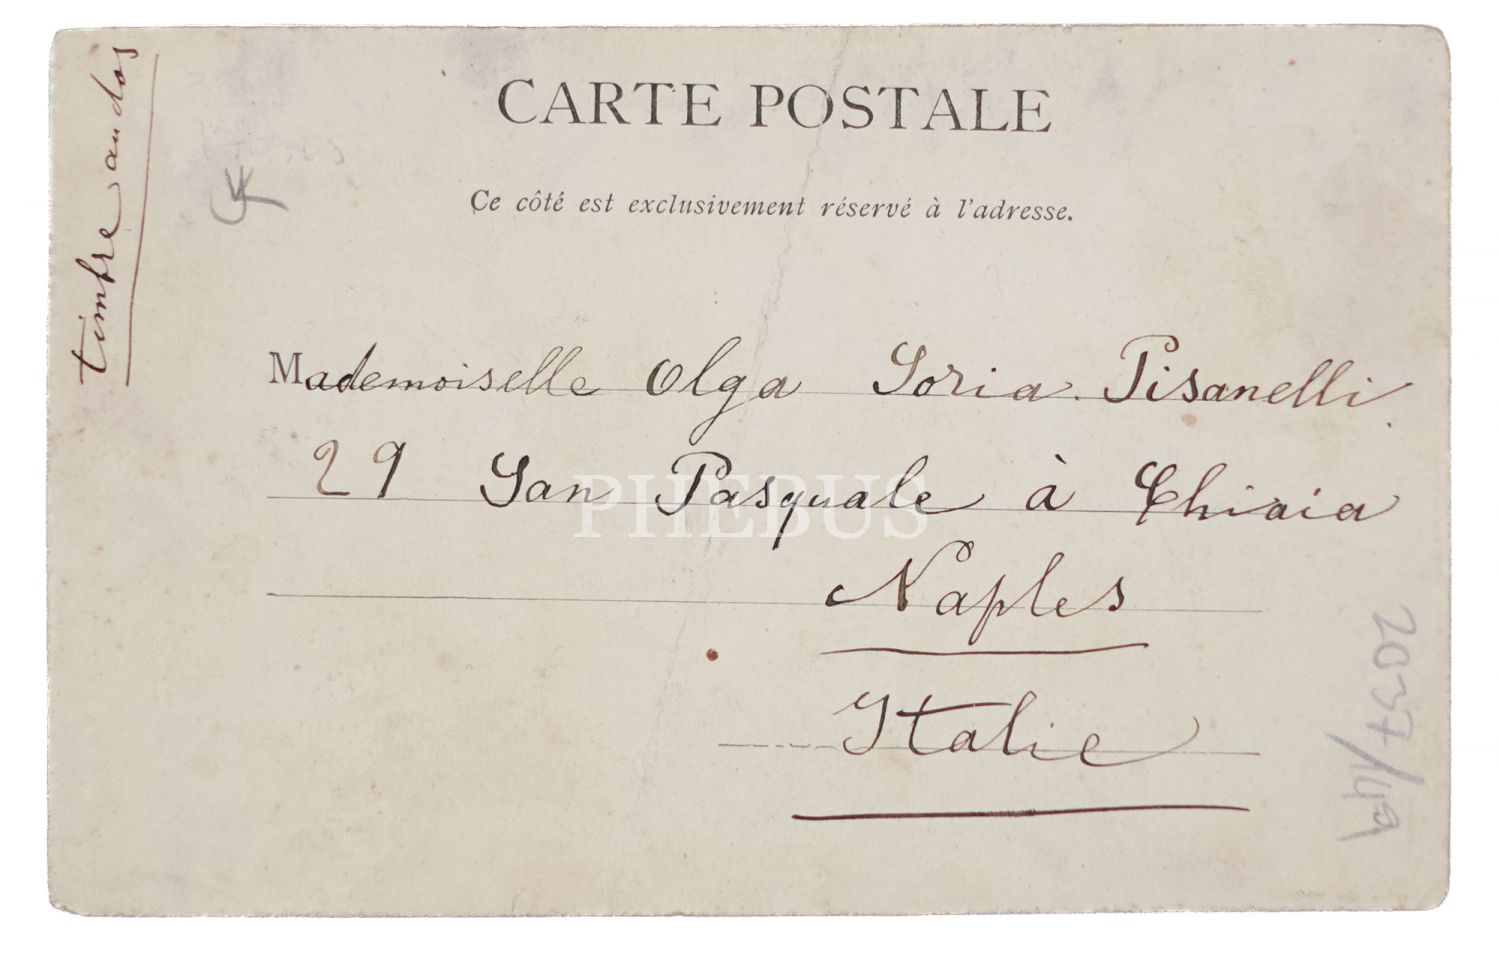 CARTE POSTALE
Ce côté est exclusivement réservé à l'adresse.
timbre au dos
Mademoiselle Olga Soria. Pisanelli.
29 San Pasquale à Chiaia
PHEBUS
Naples
Italie
2037/149